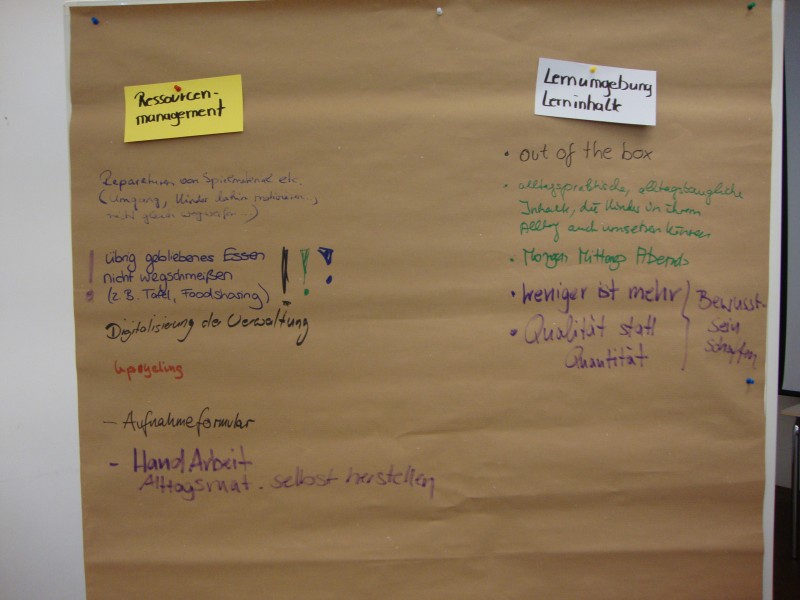 Ressourcen-
management
Reparaturen von Sportmaterial etc.
(Umgang, Kinder
nicht gleich wegwerfen...)
! übrig gebliebenes Essen !!!
nicht wegschmeißen
(z.B. Tafel, Foodsharing)
Digitalisierung der Verwaltung
Upcycling
- Aufnahmeformular
- HandArbeit
Alltagsmat. selbst herstellen
Lernumgebung
Lerninhalte
• out of the box
• alltagspraktische, alltagstaugliche
Inhalte, die Kinder in ihrem
Alltag auch umsetzen können
• Morgen Mittags Abends
• weniger ist mehr
• Qualität statt
Quantität
Bewusst-
sein
schaffen